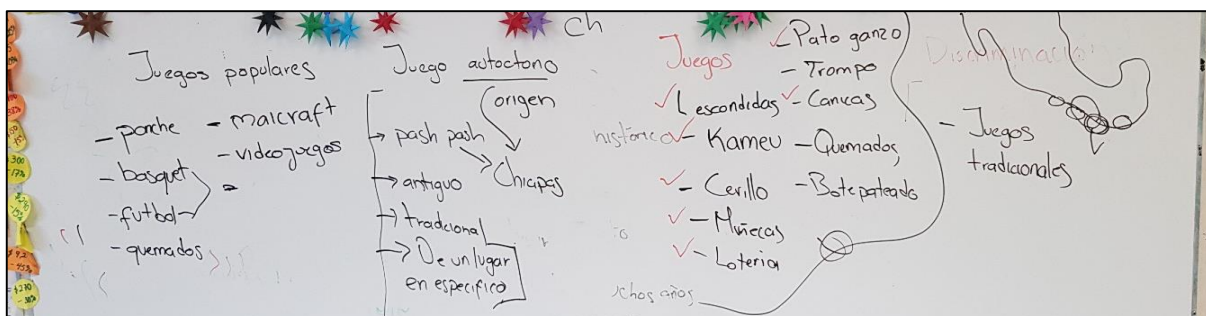 Ch
Juegos populares
- ponche
- basquet
- futbol
- quemados
- maicraft
- videojuegos
Juego autoctono
origen
→ pash pash
Chiapas
→ antiguo
→ tradicional
→ De un lugar
en especifico
Juegos
histórico
✓ Lescondidas
✓ - Kameu
✓ - Cerillo
✓ - Muñecas
✓ - Loteria
✓ - Pato ganzo
- Trompo
✓ - Canicas
- Quemados
- Bote pateado
chos años
Discriminació
- Juegos
tradicionales